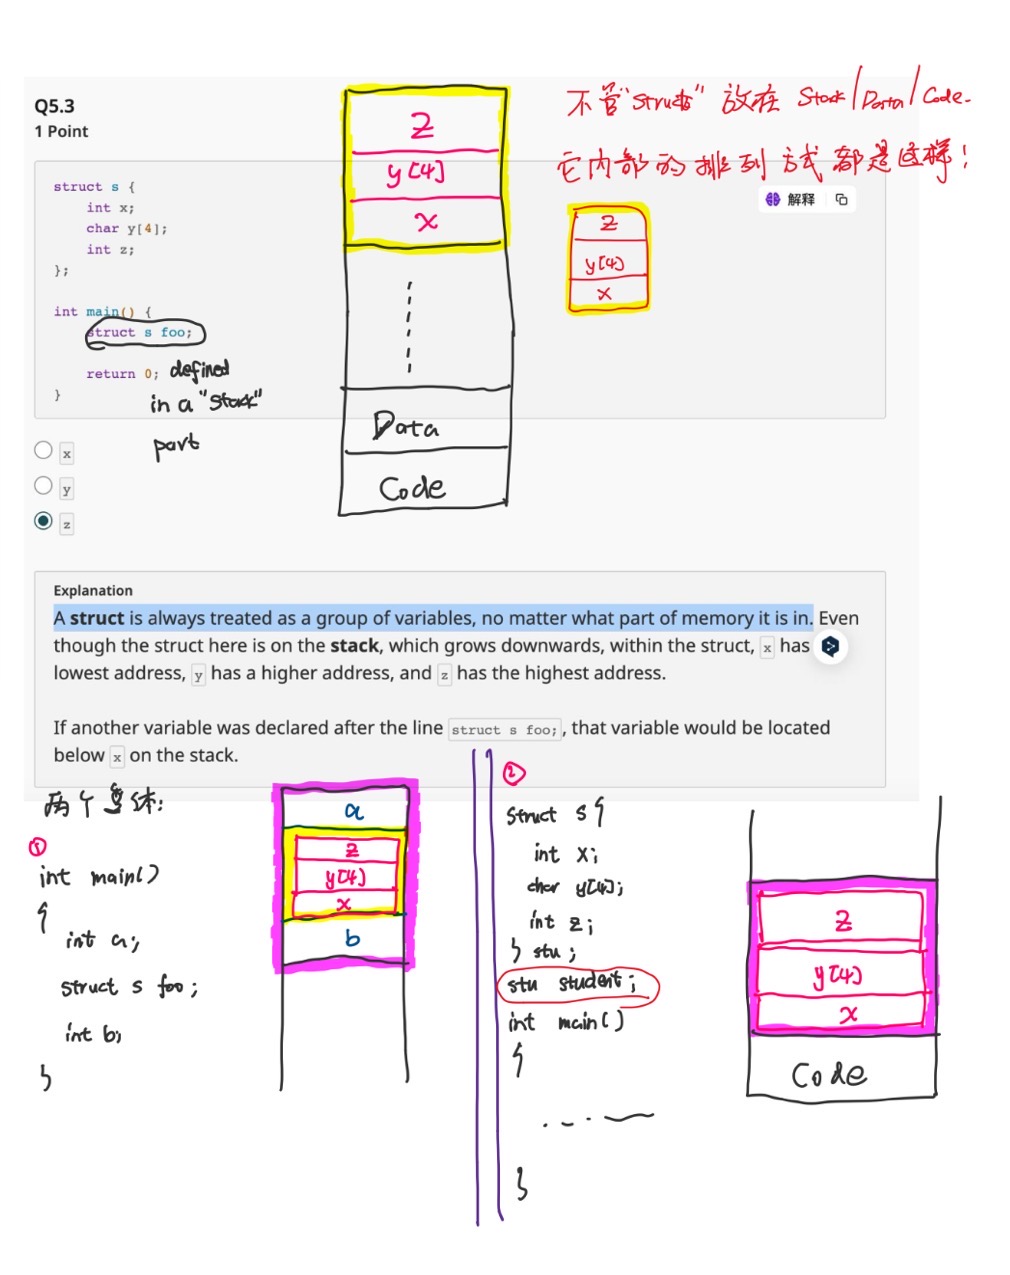 Q5.3
1 Point
struct s {
int x;
char y[4];
int z;
};
int main() {
struct s foo;
return 0;
}
defined
in a "Stack"
part
z
y[4]
x
Data
Code
不管"Struct" 放在 Stack/Data/Code.
它内部的排列方式都是这样！
解释
z
y[4]
x
x
y
z
Explanation
A struct is always treated as a group of variables, no matter what part of memory it is in. Even
though the struct here is on the stack, which grows downwards, within the struct, x has
lowest address, y has a higher address, and z has the highest address.
If another variable was declared after the line struct s foo; , that variable would be located
below x on the stack.
两个
①
int main()
{
int a;
struct s foo;
int b;
}
a
z
y[4]
x
b
②
struct s{
int x;
char y[4];
int z;
} stu;
stu student;
int main()
{
}
z
y[4]
x
Code